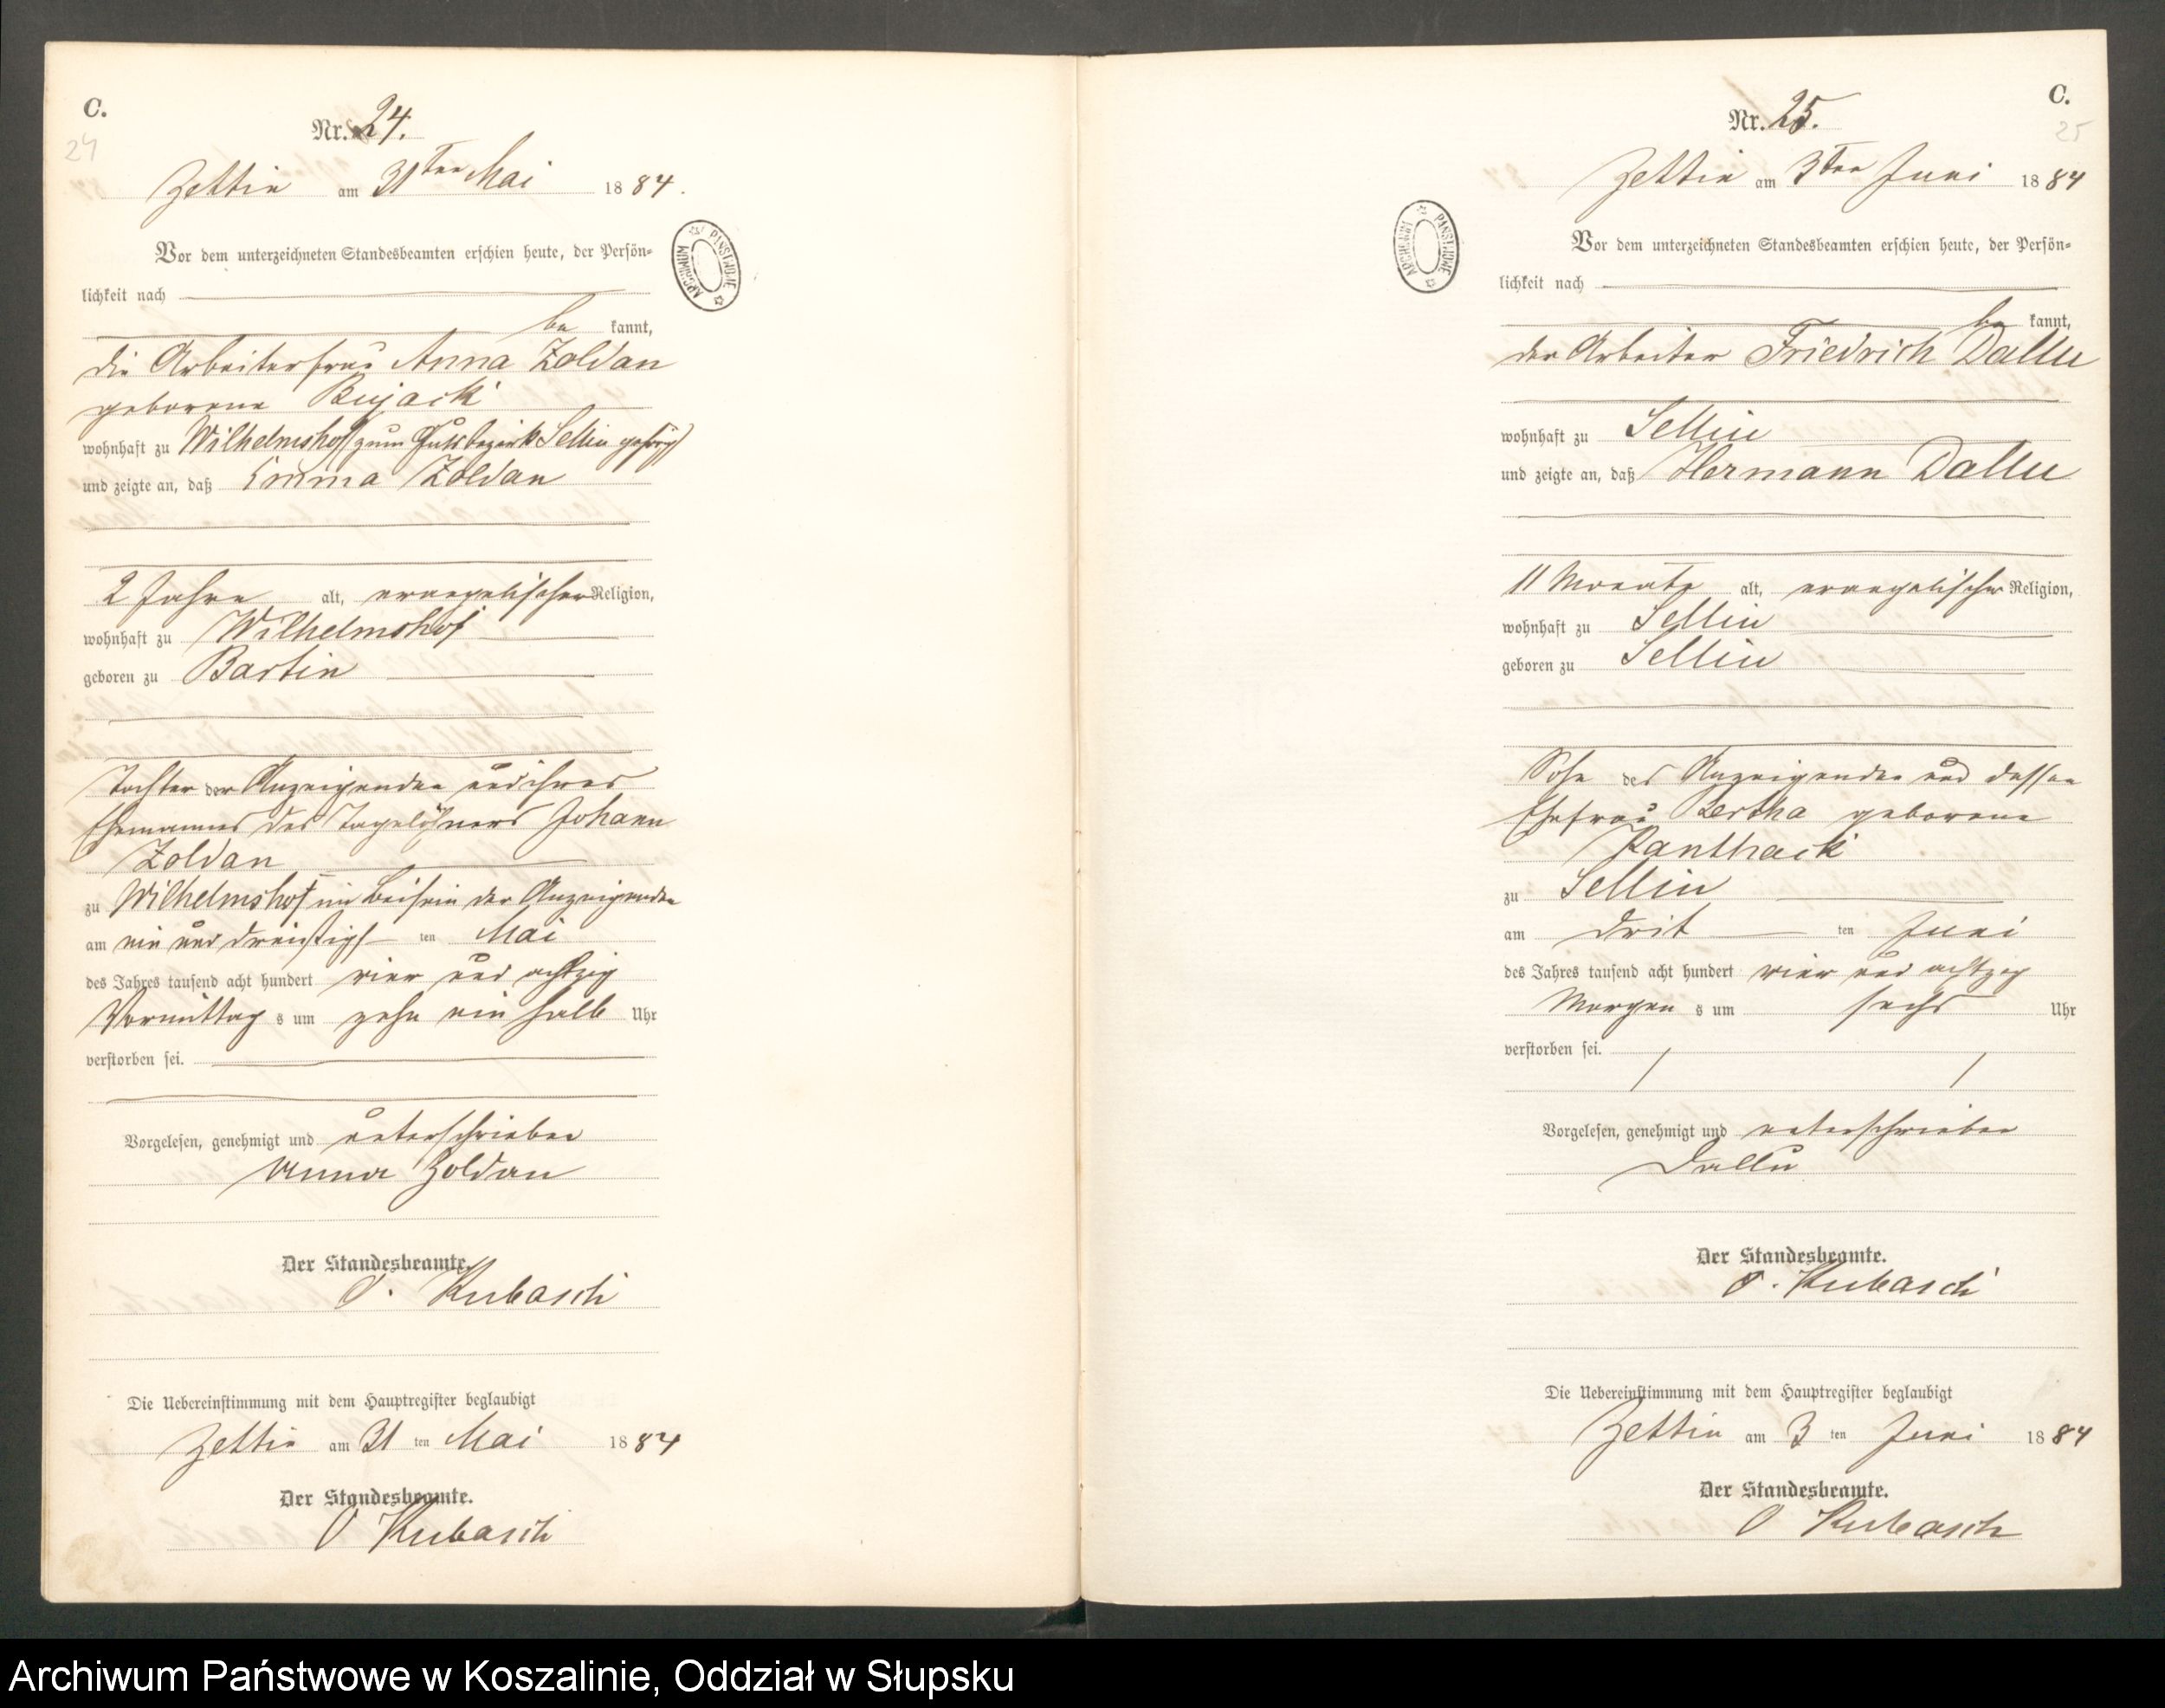 C.
24
Nr. 24.
Zettin am 31ten Mai 1884.
Vor dem unterzeichneten Standesbeamten erschien heute, der Persön=
lichkeit nach
be kannt,
die Arbeiterfrau Anna Zoldan
geborene Bujack
wohnhaft zu Wilhelmshof zum Gutsbezirk Sellin gehörig
und zeigte an, daß Emma Zoldan
2 Jahre alt, evangelischer Religion,
wohnhaft zu Wilhelmshof
geboren zu Bartin
Tochter der Anzeigenden und ihres
Ehemannes des Tagelöhners Johann
Zoldan
zu Wilhelmshof im Beisein der Anzeigenden
am ein und dreißigst ten Mai
des Jahres tausend acht hundert vier und achtzig
Vormittag s um zehn ein halb Uhr
verstorben sei.
Vorgelesen, genehmigt und unterschrieben
Anna Zoldan
Der Standesbeamte.
O. Kubasch
Die Uebereinstimmung mit dem Hauptregister beglaubigt
Zettin am 31 ten Mai 1884
Der Standesbeamte.
O Kubasch
ARCHIWUM PAŃSTWOWE
C.
25
Nr. 25.
Zettin am 3ten Juni 1884
Vor dem unterzeichneten Standesbeamten erschien heute, der Persön=
lichkeit nach
be kannt,
der Arbeiter Friedrich Dallu
wohnhaft zu Sellin
und zeigte an, daß Hermann Dallu
11 Monate alt, evangelischer Religion,
wohnhaft zu Sellin
geboren zu Sellin
Sohn des Anzeigenden und dessen
Ehefrau Bertha geborene
Panthack
zu Sellin
am drit ten Juni
des Jahres tausend acht hundert vier und achtzig
Morgen s um sechs Uhr
verstorben sei.
Vorgelesen, genehmigt und unterschrieben
Dallu
Der Standesbeamte.
O. Kubasch
Die Uebereinstimmung mit dem Hauptregister beglaubigt
Zettin am 3 ten Juni 1884
Der Standesbeamte.
O Kubasch
ARCHIWUM PAŃSTWOWE
Archiwum Państwowe w Koszalinie, Oddział w Słupsku